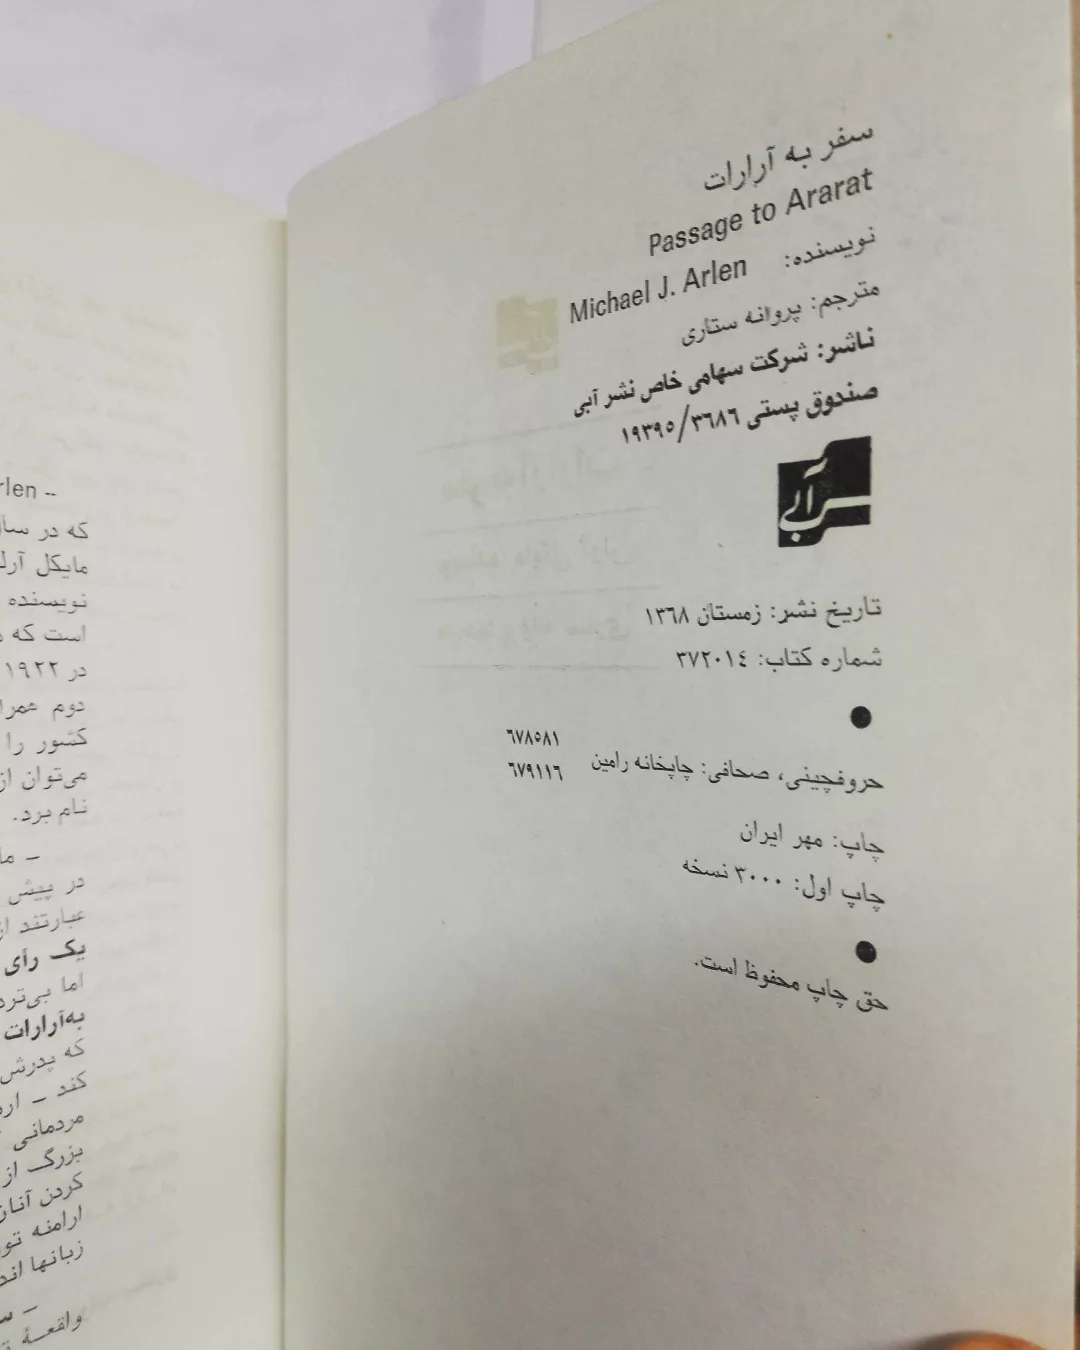 سفر به آرارات
Passage to Ararat
نویسنده: Michael J. Arlen
مترجم: پروانه ستاری
ناشر: شرکت سهامی خاص نشر آبی
صندوق پستی ۱۹۳۹۵/۳۶۸۶
آبی
تاریخ نشر: زمستان ۱۳۶۸
شماره کتاب: ۳۷۲۰۱۴
●
حروفچینی، صحافی: چاپخانه رامین ۶۷۸۵۸۱
۶۷۹۱۱۶
چاپ: مهر ایران
چاپ اول: ۳۰۰۰ نسخه
●
حق چاپ محفوظ است.
–
که در
مایکل
نویسنده
است که
در ۱۹۲۲
دوم
کشور را
می‌توان از
نام برد.
–
در پیش
عبارتند از
یک رأی
اما
به‌آرارات
که پدرش
کند –
مردمانی
بزرگ از
کردن آنان
ارامنه
زبانها
–
واقعهٔ